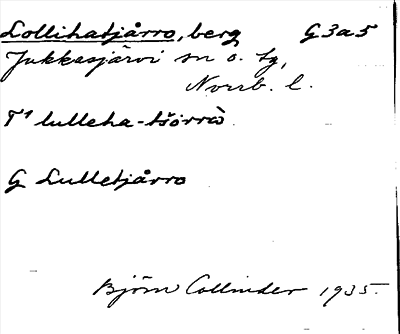 Lollihatjårro, berg G 3 a 5
Jukkasjärvi sn o. tg,
Norrb. l.
T¹ lulleha-tšorrò.
G Lulletjårro
Björn Collinder 1935.